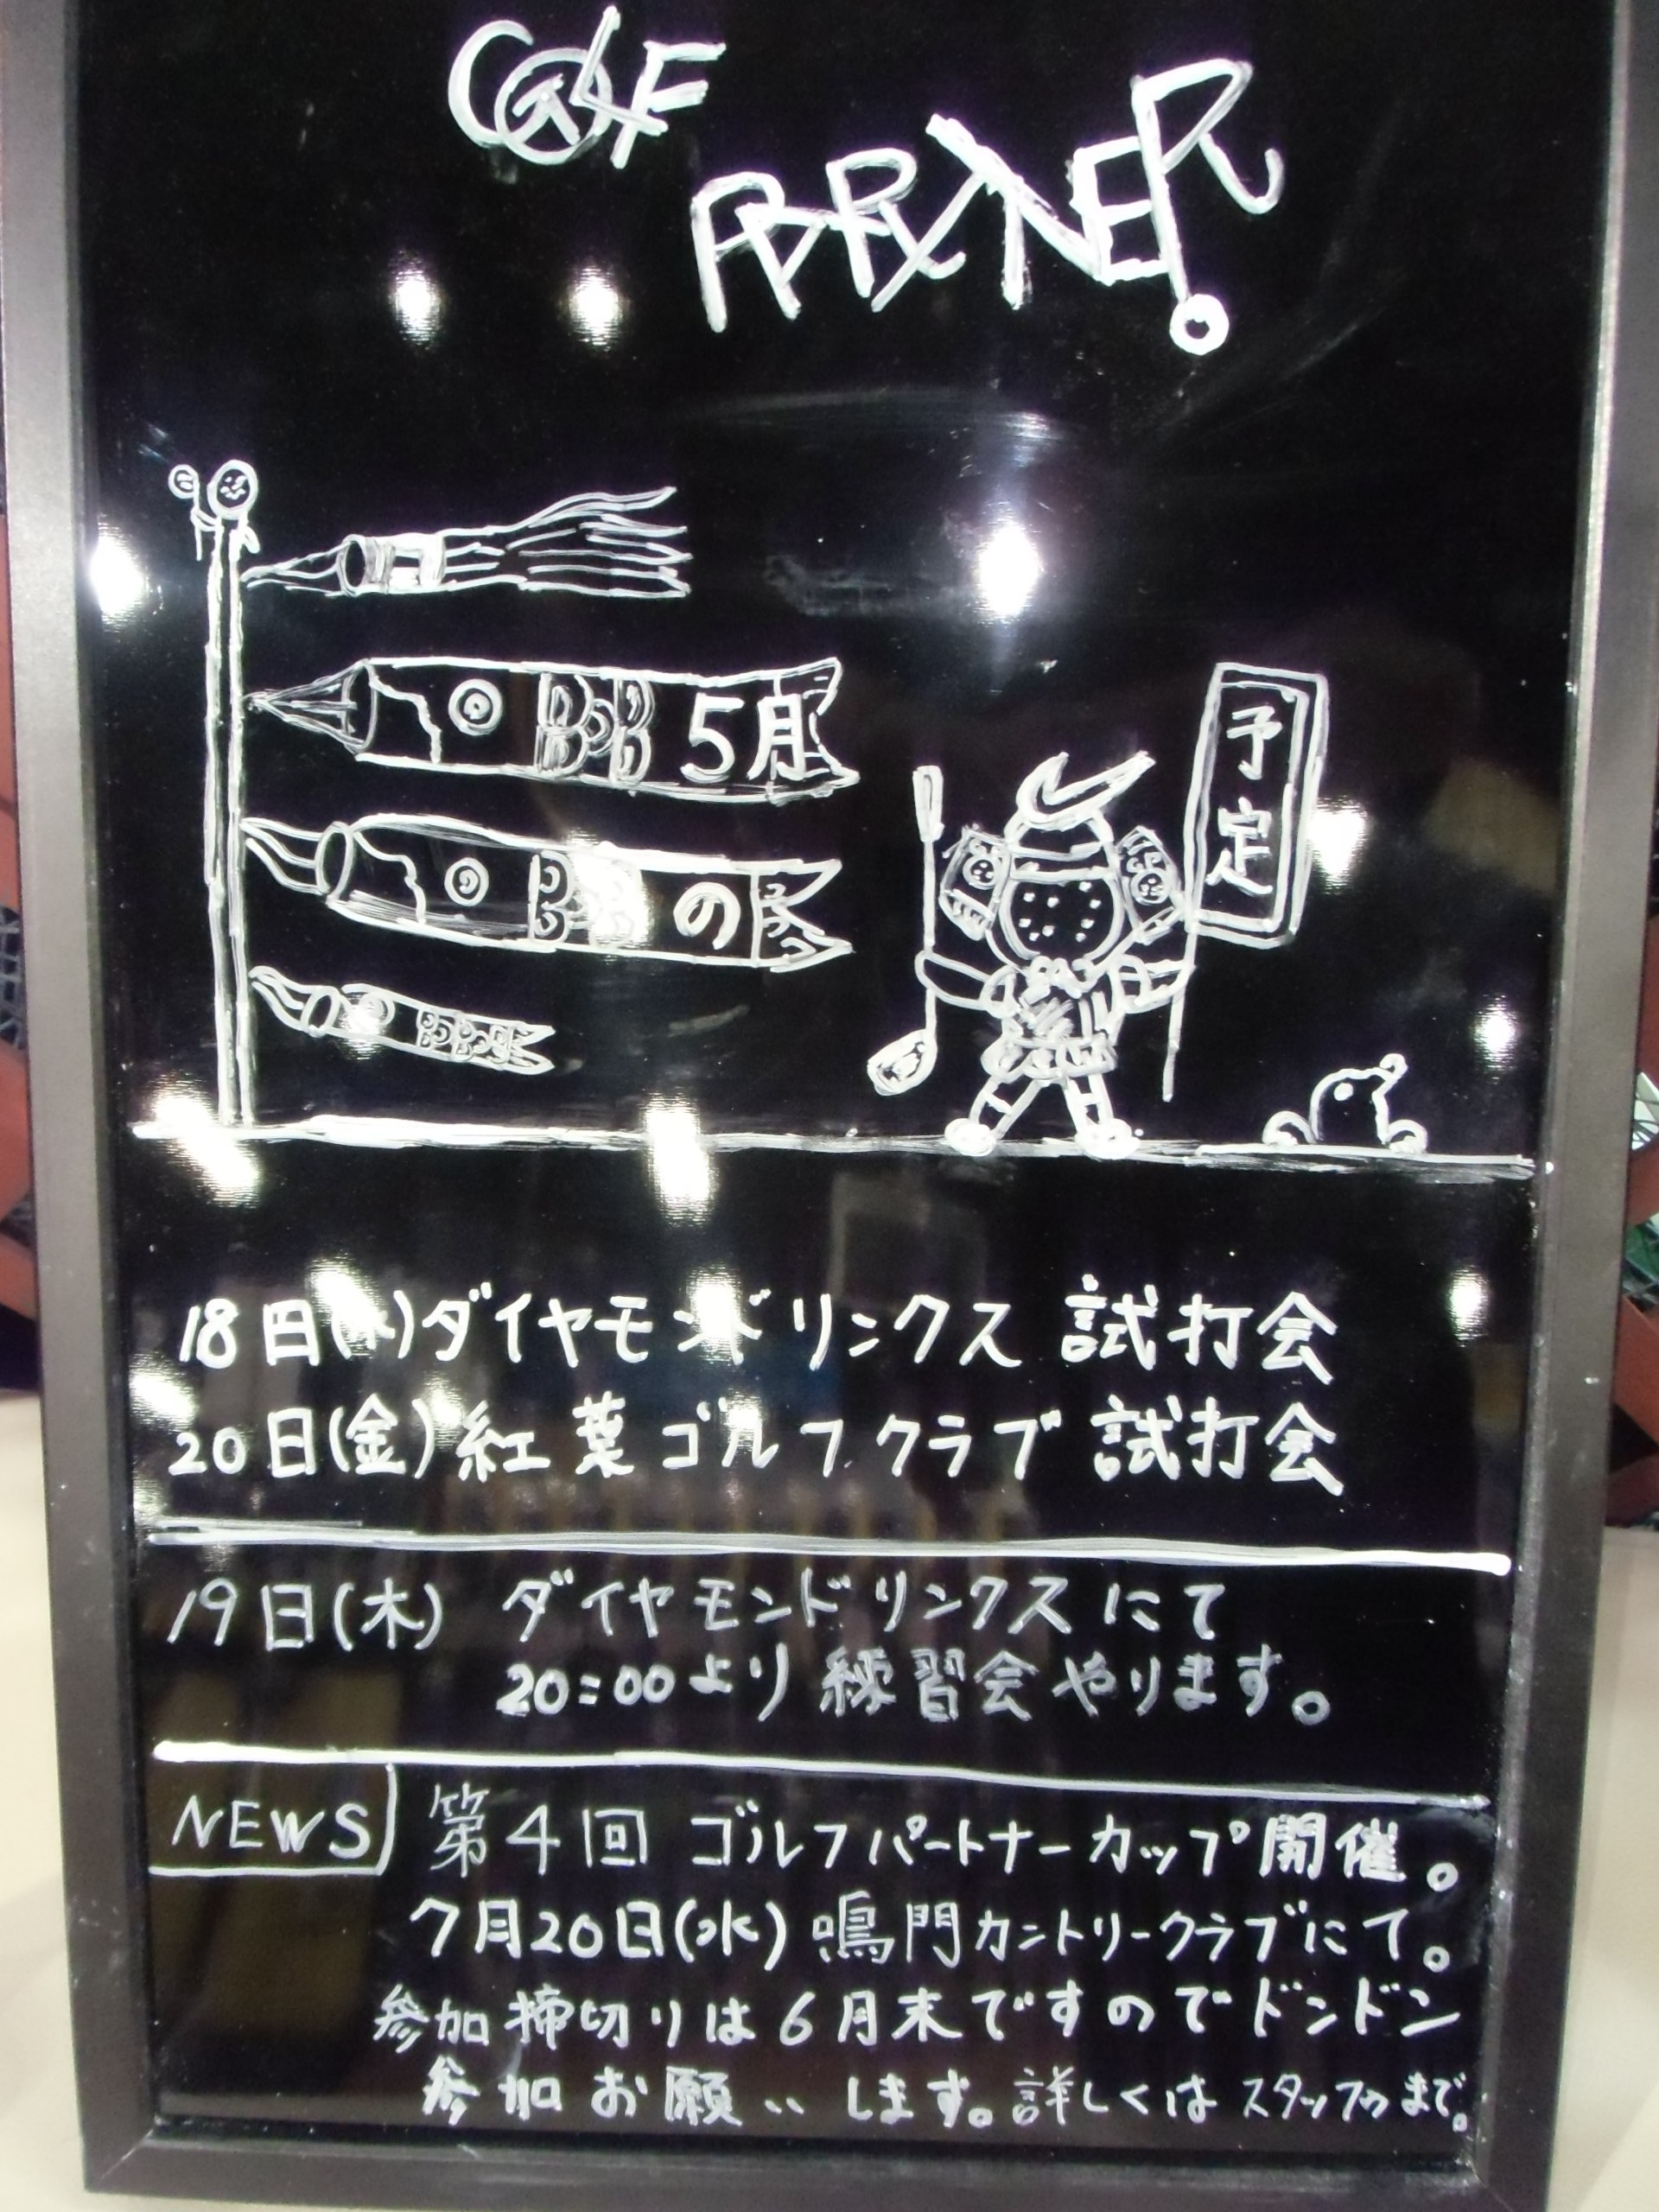 GOLF
PARTNER
5月
の
予定
18日(水)ダイヤモンドリンクス 試打会
20日(金)紅葉ゴルフクラブ 試打会
19日(木) ダイヤモンドリンクスにて
20:00より練習会やります。
NEWS 第4回 ゴルフパートナーカップ開催。
7月20日(水)鳴門カントリークラブにて。
参加締切りは6月末ですのでドンドン
参加お願いします。詳しくはスタッフまで。